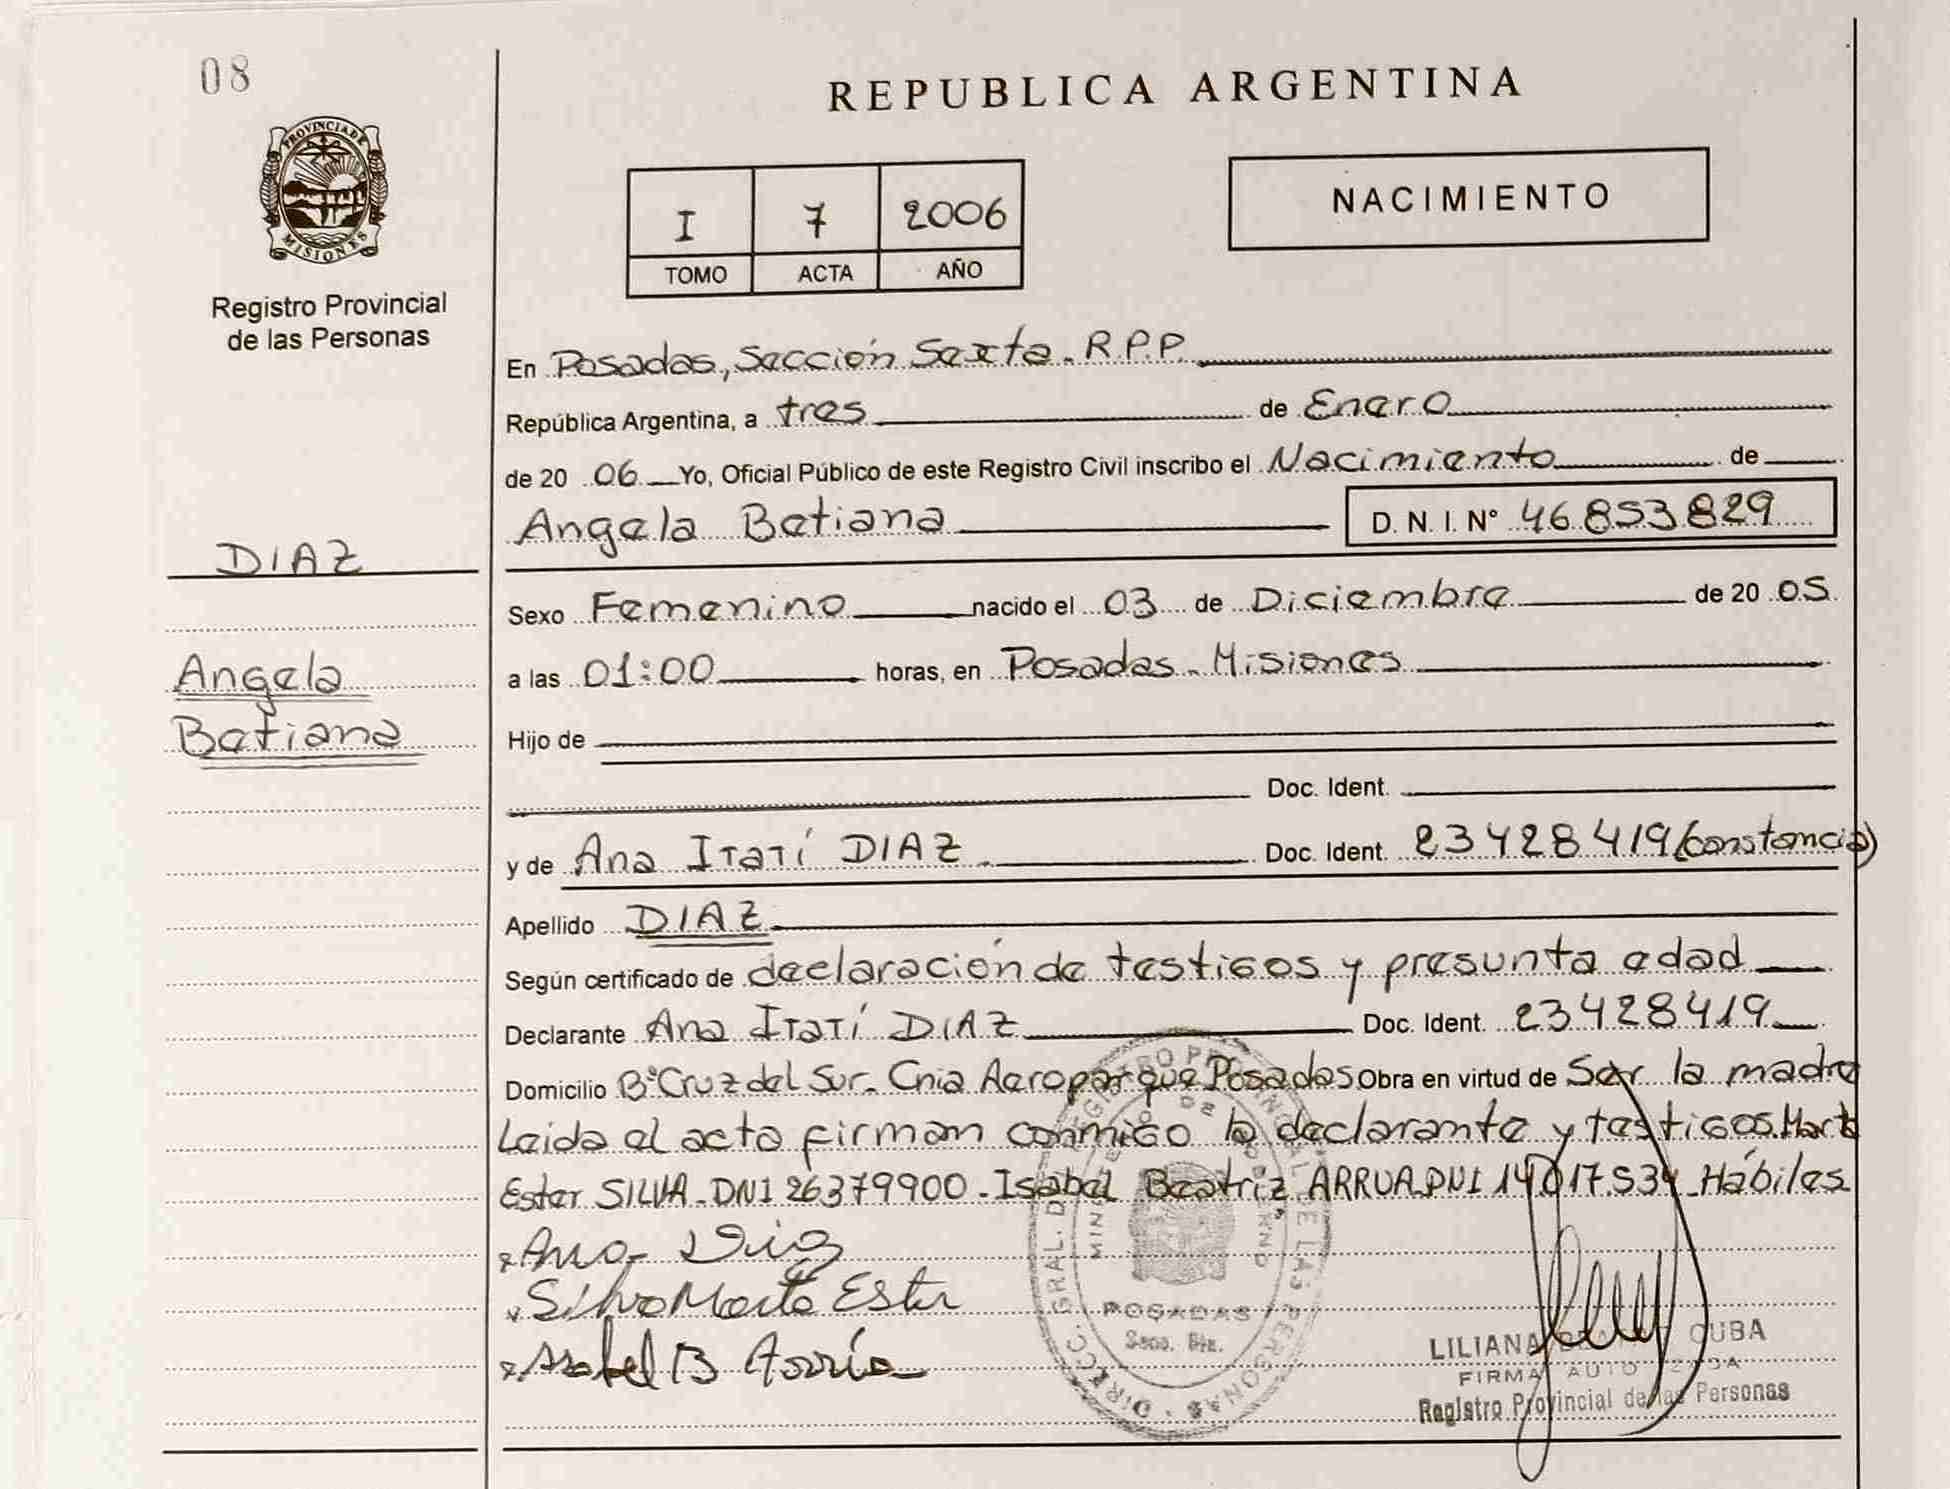 08
PROVINCIA DE
MISIONES
Registro Provincial
de las Personas
DIAZ
Angela
Betiana
REPUBLICA ARGENTINA
I 7 2006
TOMO ACTA AÑO
NACIMIENTO
En Posadas, Sección Sexta. R.P.P.
República Argentina, a tres de Enero
de 20 06 Yo, Oficial Público de este Registro Civil inscribo el Nacimiento de
Angela Betiana D. N. I. N° 46.853.829
Sexo Femenino nacido el 03 de Diciembre de 20 05
a las 01:00 horas, en Posadas - Misiones
Hijo de
Doc. Ident.
y de Ana Itatí DIAZ Doc. Ident. 23428419 (constancia)
Apellido DIAZ
Según certificado de declaración de testigos y presunta edad
Declarante Ana Itatí DIAZ Doc. Ident. 23428419
Domicilio B° Cruz del Sur - Cnia Aeroparque Posadas Obra en virtud de Ser la madre
Leida el acta firman conmigo la declarante y testigos. Marta
Ester SILVA - DNI 26379900 - Isabel Beatriz ARRUA DNI 14.017.534 - Hábiles
x Ana Diaz
x Silva Marta Ester
x Isabel B Arrúa
DIRECC. GRAL. DEL REGISTRO PROVINCIAL DE LAS PERSONAS
MINISTERIO DE GOBIERNO
POSADAS
LILIANA CUBA
FIRMA AUTORIZADA
Registro Provincial de las Personas